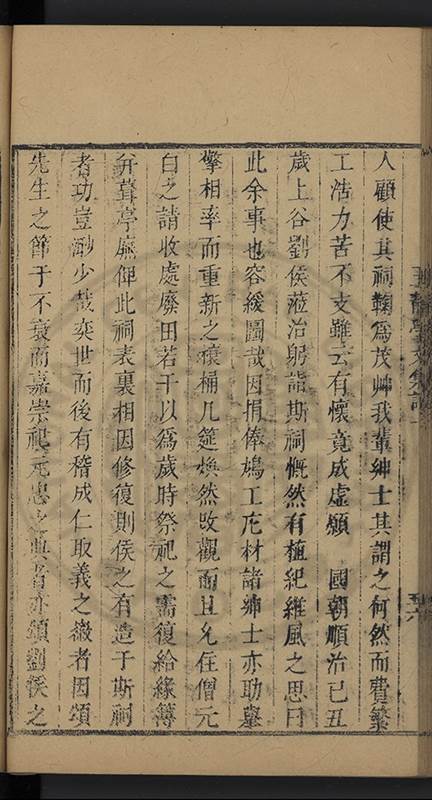 人顧使其祠鞠為茂艸我輩紳士其謂之何然而費繁
工浩力苦不支雖云有懷竟成虛願　國朝順治己丑
歲上谷劉侯蒞治躬詣斯祠慨然有植紀維風之思曰
此余事也容緩圖哉因捐俸鳩工庀材諸紳士亦助鼛
擎相率而重新之榱桷几筵煥然改觀而且允住僧元
白之請收處廢田若干以為歲時祭祀之需復給緣簿
弁葺亭廡俾此祠表裏相因修復則侯之有造于斯祠
者功豈尠少哉奕世而後有稽成仁取義之徽者因頌
先生之節于不衰而嘉崇祀元忠之典者亦頌劉侯之